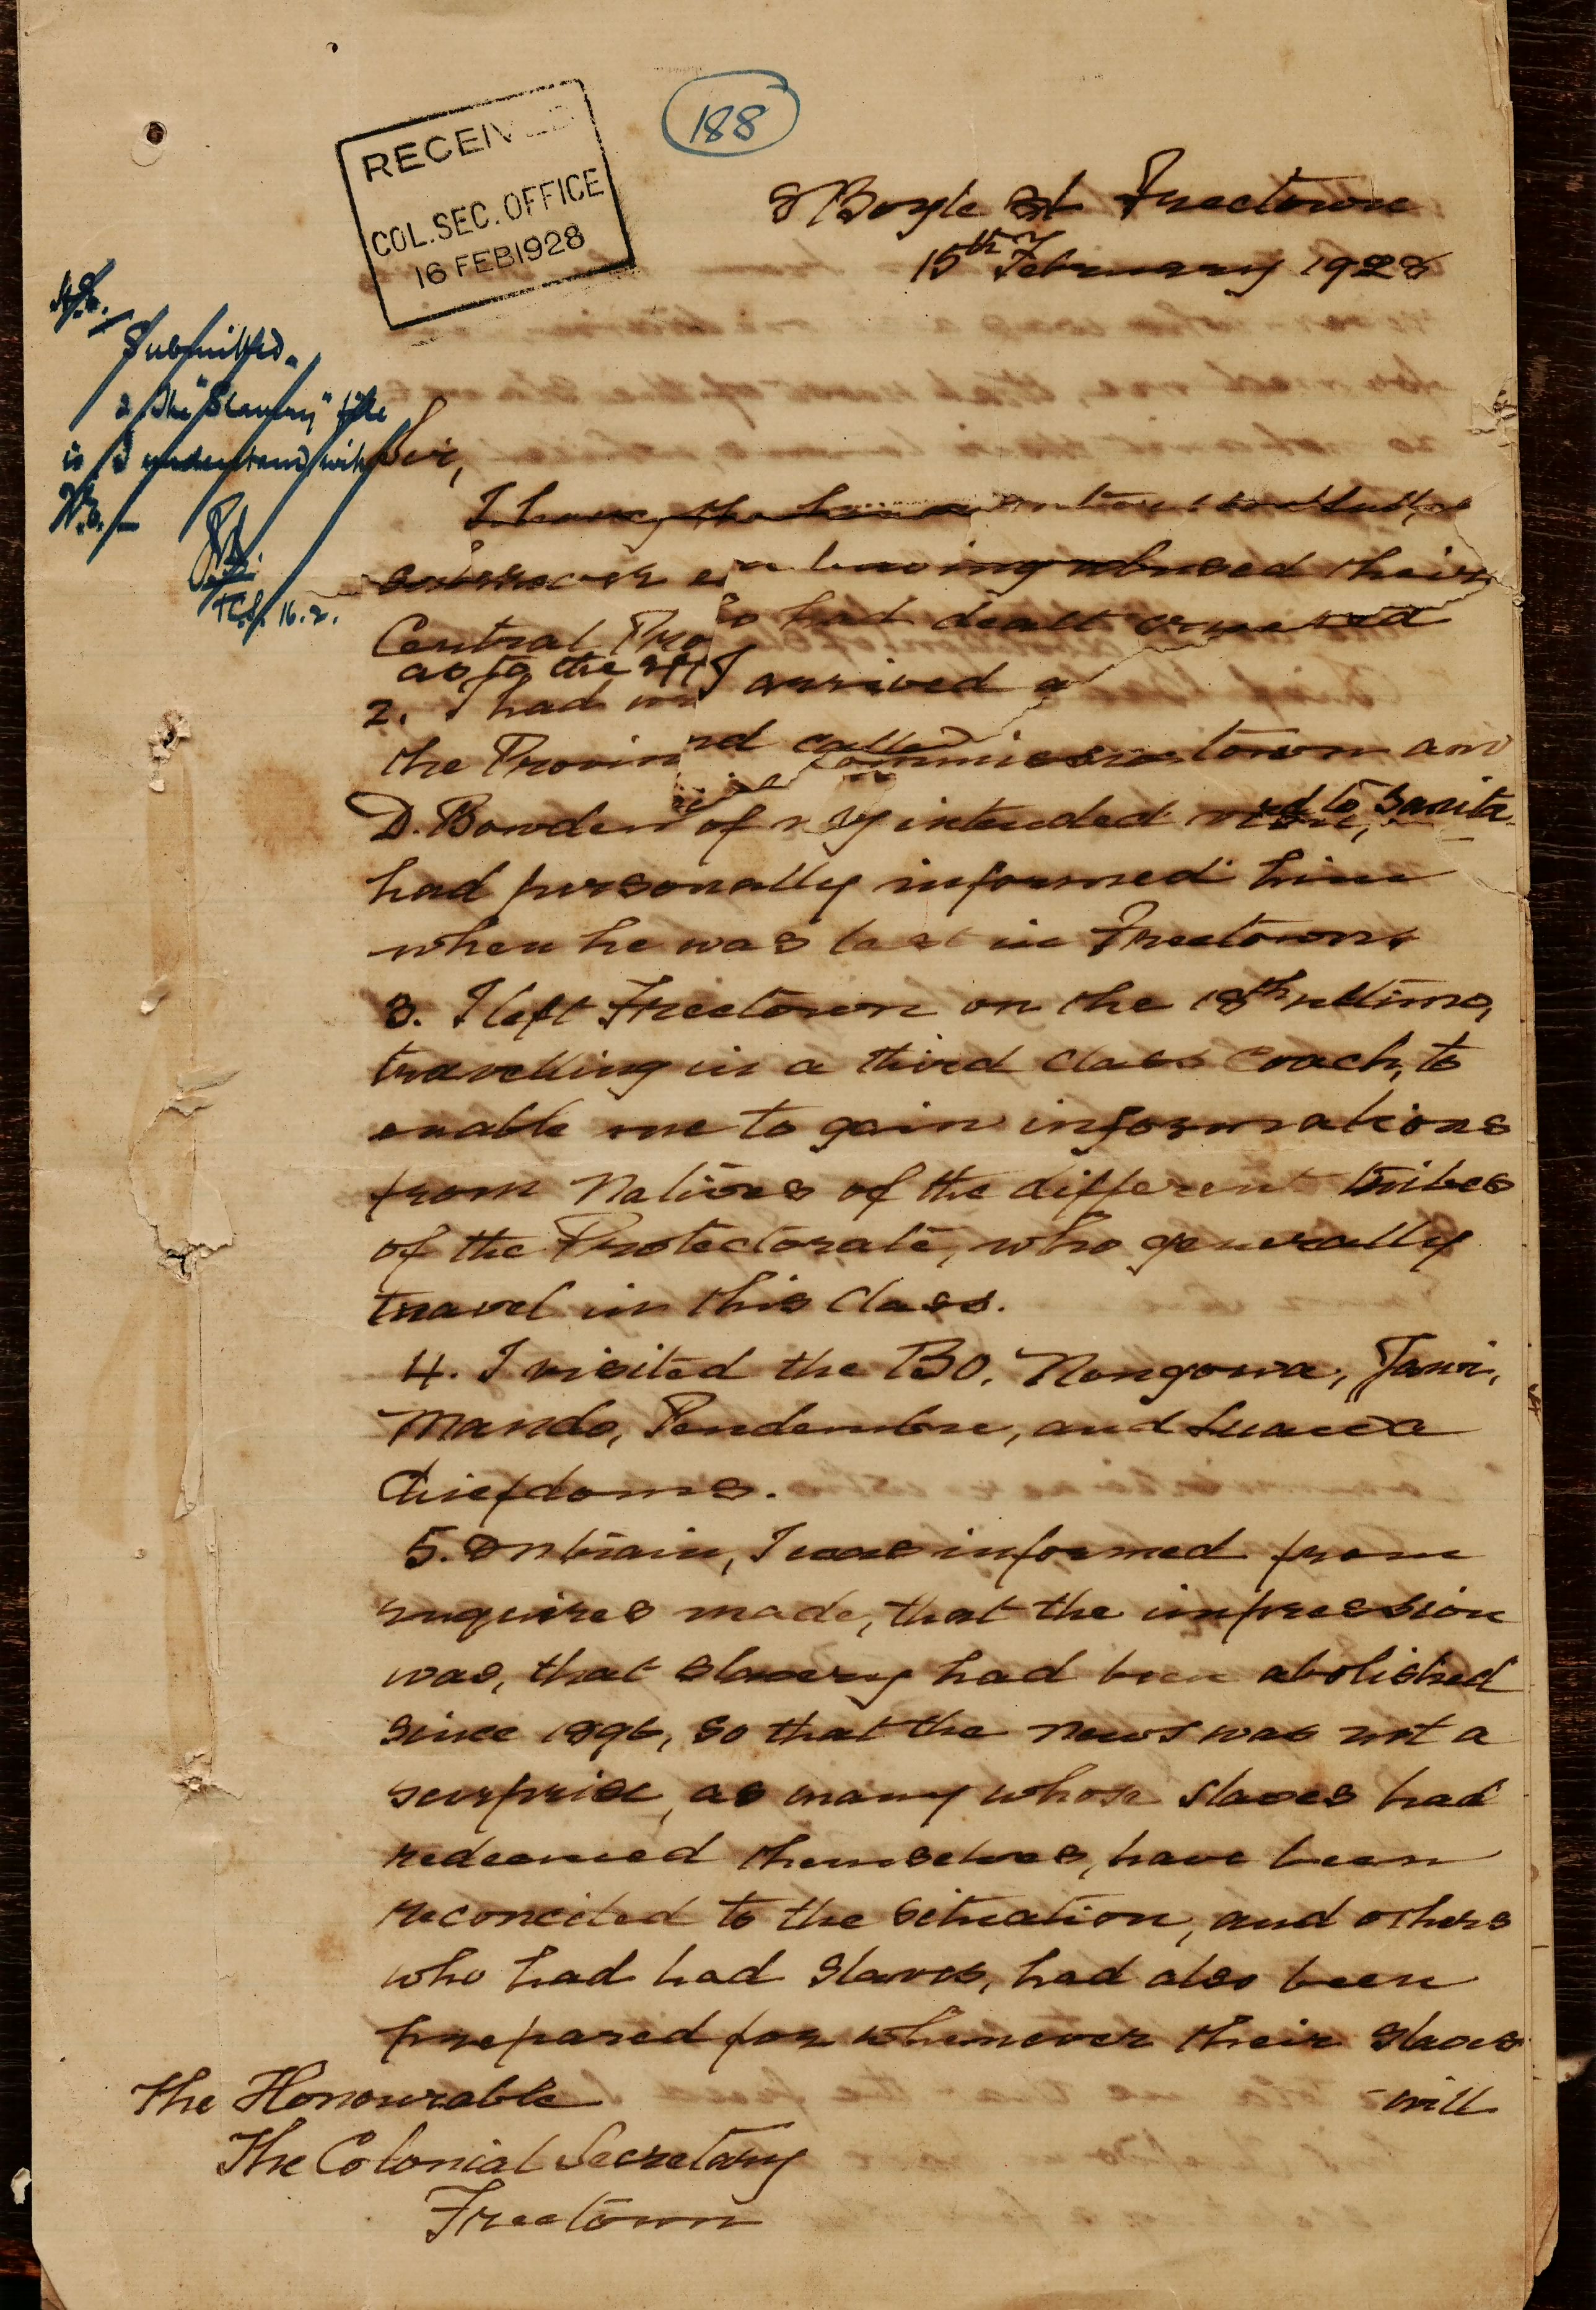 188
RECEIV
COL. SEC. OFFICE
16 FEB 1928
8 Boyle St Freetown
15th February 1928
Submitted.
2 The "Slavery" file
is I understand with
16.2.
Sir,
I have the
having abused their
Central Pro had dealt
as to the
2. I had arrived a
the Provin nd called Commissio town and
D. Bowden of my intended to Sanita
had personally informed him
when he was last in Freetown.
3. I left Freetown on the 18th ultimo,
travelling in a third class coach, to
enable me to gain informations
from Natives of the different tribes
of the Protectorate, who generally
travel in this class.
4. I visited the BO, Nongowa, Jawi,
Mando, Pendembu, and Luawa
Chiefdoms.
5. On train, I was informed from
enquires made, that the impression
was, that slavery had been abolished
since 1896, so that the news was not a
surprise, as many whose slaves had
redeemed themselves, have been
reconciled to the situation, and others
who had had slaves, had also been
prepared for whenever their slaves
will
The Honourable
The Colonial Secretary
Freetown